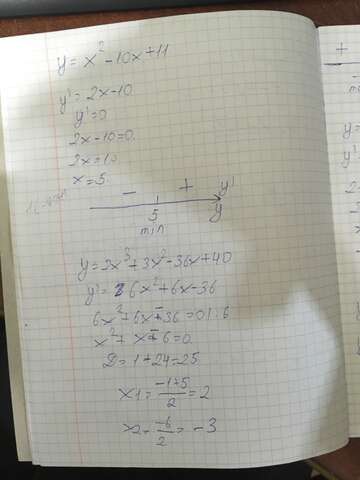 y = x² - 10x + 11
y' = 2x - 10
y' = 0
2x - 10 = 0
2x = 10
x = 5
- + y'
5 y
min
y = 2x³ + 3x² - 36x + 40
y' = 6x² + 6x - 36
6x² + 6x - 36 = 0 | : 6
x² + x - 6 = 0
D = 1 + 24 = 25
x1 = -1+5/2 = 2
x2 = -6/2 = -3